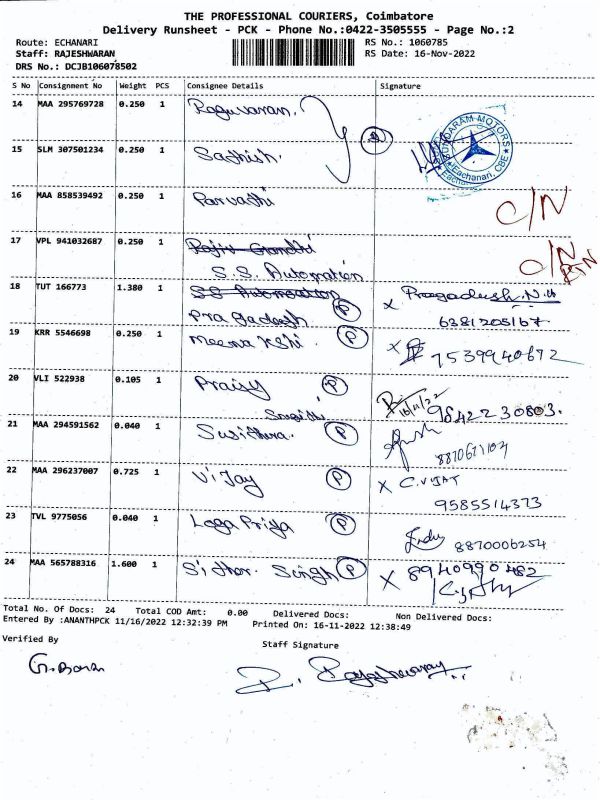 THE PROFESSIONAL COURIERS, Coimbatore
Delivery Runsheet - PCK - Phone No.:0422-3505555 - Page No.:2
Route: ECHANARI RS No.: 1060785
Staff: RAJESHWARAN RS Date: 16-Nov-2022
DRS No.: DCJB106078502
S No Consignment No Weight PCS Consignee Details Signature
14 MAA 295769728 0.250 1 Raguvaran.
SUNDARAM MOTORS
Eachanari, CBE
15 SLM 307501234 0.250 1 Sathish.
16 MAA 858539492 0.250 1 Parvathi C/N
17 VPL 941032687 0.250 1 Rajiv Gandhi C/N
S.S. Automation
18 TUT 166773 1.380 1 SS Automation x Pragadesh.N.H
Pragadesh P 6381205167
19 KRR 5546698 0.250 1 Meenakshi P x 7539940672
20 VLI 522938 0.105 1 Praisy P 16/11/22 9842230803.
21 MAA 294591562 0.040 1 Susithra. P
22 MAA 296237007 0.725 1 Vijay P x C.VIJAY
9585514373
23 TVL 9775056 0.040 1 Loga Priya P Indu 8870006254
24 MAA 565788316 1.600 1 Sidhar. Singh P x 8940990482
Total No. Of Docs: 24 Total COD Amt: 0.00 Delivered Docs: Non Delivered Docs:
Entered By :ANANTHPCK 11/16/2022 12:32:39 PM Printed On: 16-11-2022 12:38:49
Verified By Staff Signature
G.Baran R. Rajeshwaran